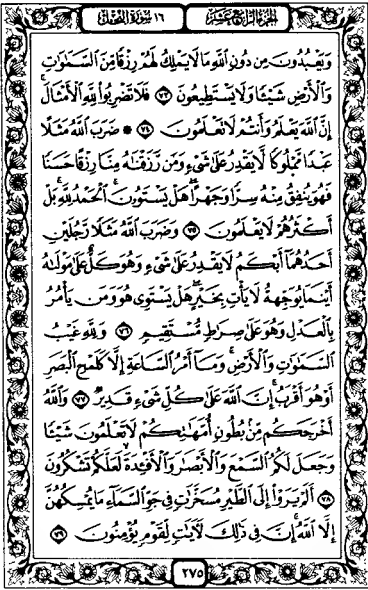 الجزء الرابع عشر
١٦ سورة النحل
وَيَعْبُدُونَ مِن دُونِ ٱللَّهِ مَا لَا يَمْلِكُ لَهُمْ رِزْقًا مِّنَ ٱلسَّمَٰوَٰتِ
وَٱلْأَرْضِ شَيْـًٔا وَلَا يَسْتَطِيعُونَ ٧٣ فَلَا تَضْرِبُوا۟ لِلَّهِ ٱلْأَمْثَالَ
إِنَّ ٱللَّهَ يَعْلَمُ وَأَنتُمْ لَا تَعْلَمُونَ ٧٤ ۞ ضَرَبَ ٱللَّهُ مَثَلًا
عَبْدًا مَّمْلُوكًا لَّا يَقْدِرُ عَلَىٰ شَىْءٍ وَمَن رَّزَقْنَٰهُ مِنَّا رِزْقًا حَسَنًا
فَهُوَ يُنفِقُ مِنْهُ سِرًّا وَجَهْرًا هَلْ يَسْتَوُۥنَ ٱلْحَمْدُ لِلَّهِ بَلْ
أَكْثَرُهُمْ لَا يَعْلَمُونَ ٧٥ وَضَرَبَ ٱللَّهُ مَثَلًا رَّجُلَيْنِ
أَحَدُهُمَآ أَبْكَمُ لَا يَقْدِرُ عَلَىٰ شَىْءٍ وَهُوَ كَلٌّ عَلَىٰ مَوْلَىٰهُ
أَيْنَمَا يُوَجِّههُّ لَا يَأْتِ بِخَيْرٍ هَلْ يَسْتَوِى هُوَ وَمَن يَأْمُرُ
بِٱلْعَدْلِ وَهُوَ عَلَىٰ صِرَٰطٍ مُّسْتَقِيمٍ ٧٦ وَلِلَّهِ غَيْبُ
ٱلسَّمَٰوَٰتِ وَٱلْأَرْضِ وَمَآ أَمْرُ ٱلسَّاعَةِ إِلَّا كَلَمْحِ ٱلْبَصَرِ
أَوْ هُوَ أَقْرَبُ إِنَّ ٱللَّهَ عَلَىٰ كُلِّ شَىْءٍ قَدِيرٌ ٧٧ وَٱللَّهُ
أَخْرَجَكُم مِّنۢ بُطُونِ أُمَّهَٰتِكُمْ لَا تَعْلَمُونَ شَيْـًٔا
وَجَعَلَ لَكُمُ ٱلسَّمْعَ وَٱلْأَبْصَٰرَ وَٱلْأَفْـِٔدَةَ لَعَلَّكُمْ تَشْكُرُونَ
٧٨ أَلَمْ يَرَوْا۟ إِلَى ٱلطَّيْرِ مُسَخَّرَٰتٍ فِى جَوِّ ٱلسَّمَآءِ مَا يُمْسِكُهُنَّ
إِلَّا ٱللَّهُ إِنَّ فِى ذَٰلِكَ لَءَايَٰتٍ لِّقَوْمٍ يُؤْمِنُونَ ٧٩
٢٧٥